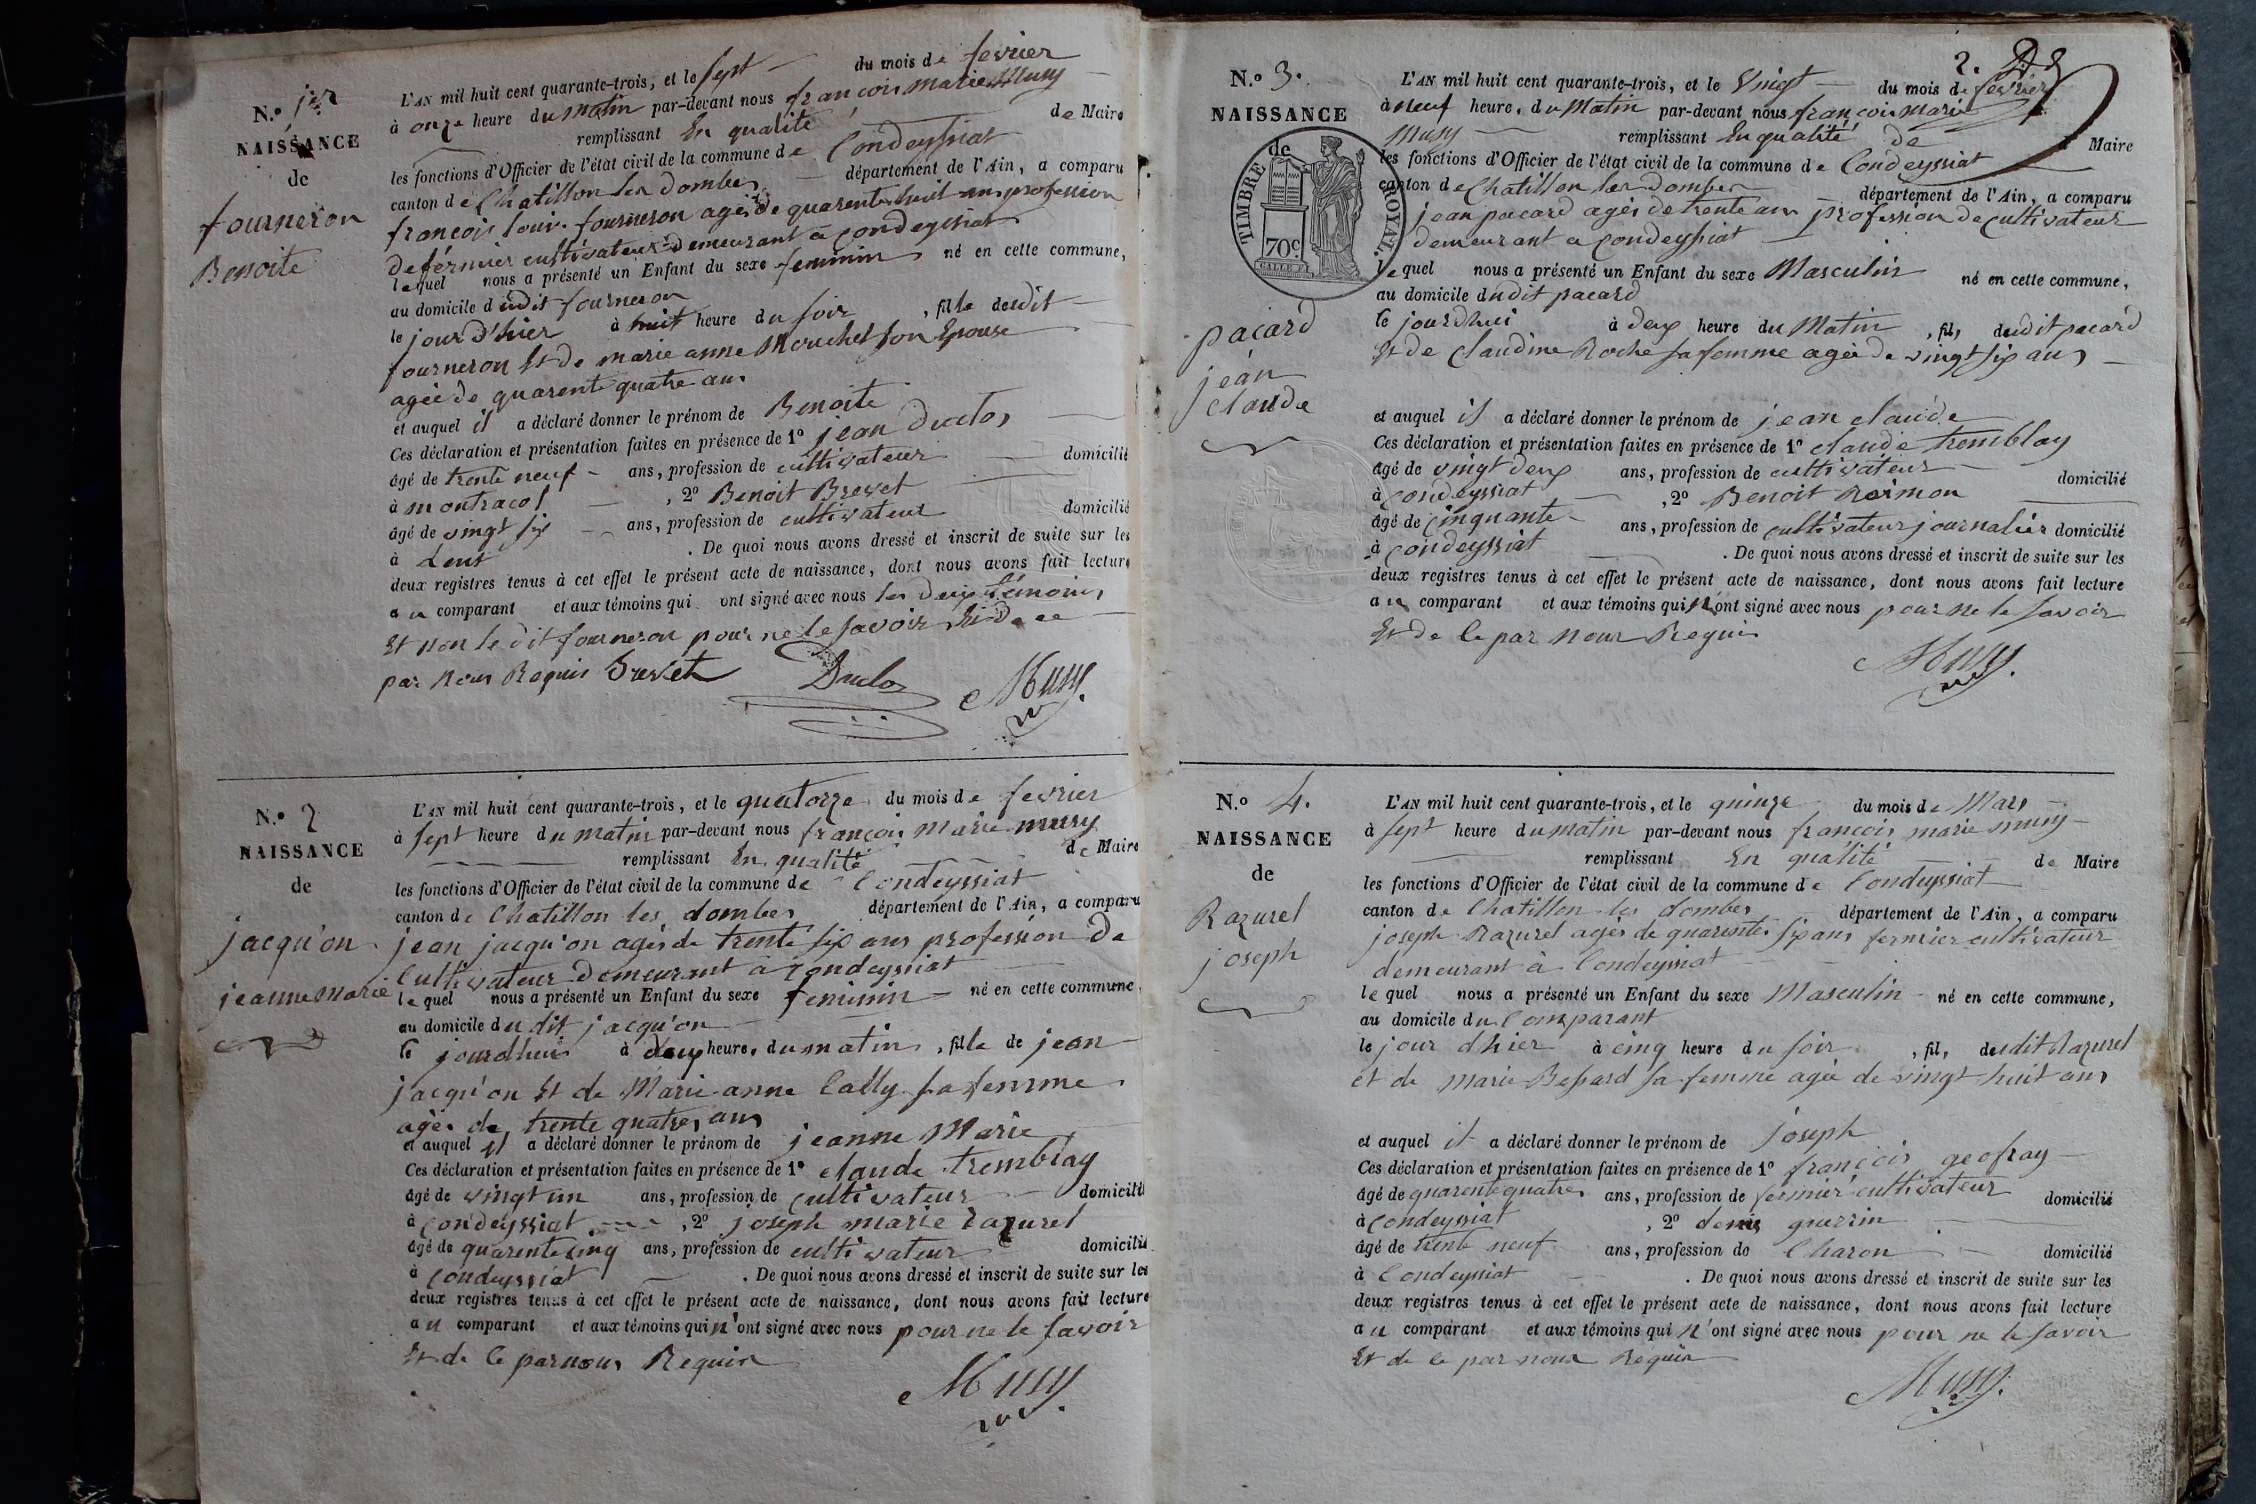 N.o 1er
NAISSANCE
de
fourneron
Benoite
L'AN mil huit cent quarante-trois, et le sept du mois de fevrier
à onze heure du matin par-devant nous francois marie Musy
remplissant En qualité de Maire
les fonctions d'Officier de l'état civil de la commune de Condeyssiat
canton de Chatillon les dombes département de l'Ain, a comparu
francois louis fourneron agés de quarente huit ans profession
de férmier cultivateur demeurant a condeyssiat
lequel nous a présenté un Enfant du sexe feminin né en cette commune,
au domicile dudit fourneron
le jour d'hier à huit heure du soir, fille dudit
fourneron Et de marie anne Mouchet son Epouse
agée de quarente quatre ans
et auquel il a déclaré donner le prénom de Benoite
Ces déclaration et présentation faites en présence de 1o jean duclos
âgé de trente neuf ans, profession de cultivateur domicilié
à montracol, 2o Benoit Brevet
âgé de vingt six ans, profession de cultivateur domicilié
à Lent. De quoi nous avons dressé et inscrit de suite sur les
deux registres tenus à cet effet le présent acte de naissance, dont nous avons fait lecture
au comparant et aux témoins qui ont signé avec nous les deux témoins
Et non le dit fourneron pour ne le savoir de ce
par Nous Requis Brevet Duclos Musy
N.o 2
NAISSANCE
de
jacqu'on
jeanne Marie
L'AN mil huit cent quarante-trois, et le quatorze du mois de fevrier
à sept heure du matin par-devant nous françois Marie musy
remplissant En qualité de Maire
les fonctions d'Officier de l'état civil de la commune de Condeyssiat
canton de Chatillon les dombes département de l'Ain, a comparu
jean jacqu'on agés de trente six ans profession de
Cultivateur demeurant à condeyssiat
lequel nous a présenté un Enfant du sexe feminin né en cette commune,
au domicile du dit jacqu'on
le jourdhui à deux heure, du matin, fille de jean
jacqu'on Et de Marie anne Cally sa femme
agés de trente quatres ans
et auquel il a déclaré donner le prénom de jeanne Marie
Ces déclaration et présentation faites en présence de 1o claude tremblay
âgé de vingt un ans, profession de cultivateur domicilié
à condeyssiat, 2o joseph marie razurel
âgé de quarente cinq ans, profession de cultivateur domicilié
à condeyssiat. De quoi nous avons dressé et inscrit de suite sur les
deux registres tenus à cet effet le présent acte de naissance, dont nous avons fait lecture
au comparant et aux témoins qui n'ont signé avec nous pour ne le savoir
Et de Ce par nous Requis
Musy
2.
N.o 3.
NAISSANCE
de
TIMBRE ROYAL.
70c
pacard
jean
claude
L'AN mil huit cent quarante-trois, et le Vingt du mois de fevrier
à neuf heure, du Matin par-devant nous françois marie
Musy remplissant En qualité de Maire
les fonctions d'Officier de l'état civil de la commune de Condeyssiat
canton de Chatillon les dombes département de l'Ain, a comparu
jean pacard agés de trente ans profession de cultivateur
demeurant a condeyssiat
lequel nous a présenté un Enfant du sexe Masculin né en cette commune,
au domicile dudit pacard
le jourdhui à deux heure du Matin, fils dudit pacard
Et de claudine Roche sa femme agée de vingt six ans
et auquel il a déclaré donner le prénom de jean claude
Ces déclaration et présentation faites en présence de 1o claude tremblay
âgé de vingt deux ans, profession de cultivateur domicilié
à condeyssiat, 2o Benoit Roimon
âgé de cinquante ans, profession de cultivateur journalier domicilié
à condeyssiat. De quoi nous avons dressé et inscrit de suite sur les
deux registres tenus à cet effet le présent acte de naissance, dont nous avons fait lecture
au comparant et aux témoins qui n'ont signé avec nous pour ne le savoir
Et de Ce par nous Requis
Musy.
N.o 4.
NAISSANCE
de
Razurel
joseph
L'AN mil huit cent quarante-trois, et le quinze du mois de Mars
à sept heure du matin par-devant nous françois marie musy
remplissant En qualité de Maire
les fonctions d'Officier de l'état civil de la commune de Condeyssiat
canton de Chatillon les dombes département de l'Ain, a comparu
joseph Razurel agés de quarente six ans fermier cultivateur
demeurant à Condeyssiat
lequel nous a présenté un Enfant du sexe Masculin né en cette commune,
au domicile du Comparant
le jour dhier à cinq heure du soir, fils dudit Razurel
et de marie Bessard sa femme agée de vingt huit ans
et auquel il a déclaré donner le prénom de joseph
Ces déclaration et présentation faites en présence de 1o françois geofray
âgé de quarente quatres ans, profession de fermier cultivateur domicilié
à condeyssiat, 2o denis guerrin
âgé de trente neuf ans, profession de Charon domicilié
à Condeyssiat. De quoi nous avons dressé et inscrit de suite sur les
deux registres tenus à cet effet le présent acte de naissance, dont nous avons fait lecture
au comparant et aux témoins qui n'ont signé avec nous pour ne le savoir
Et de Ce par nous Requis
Musy.